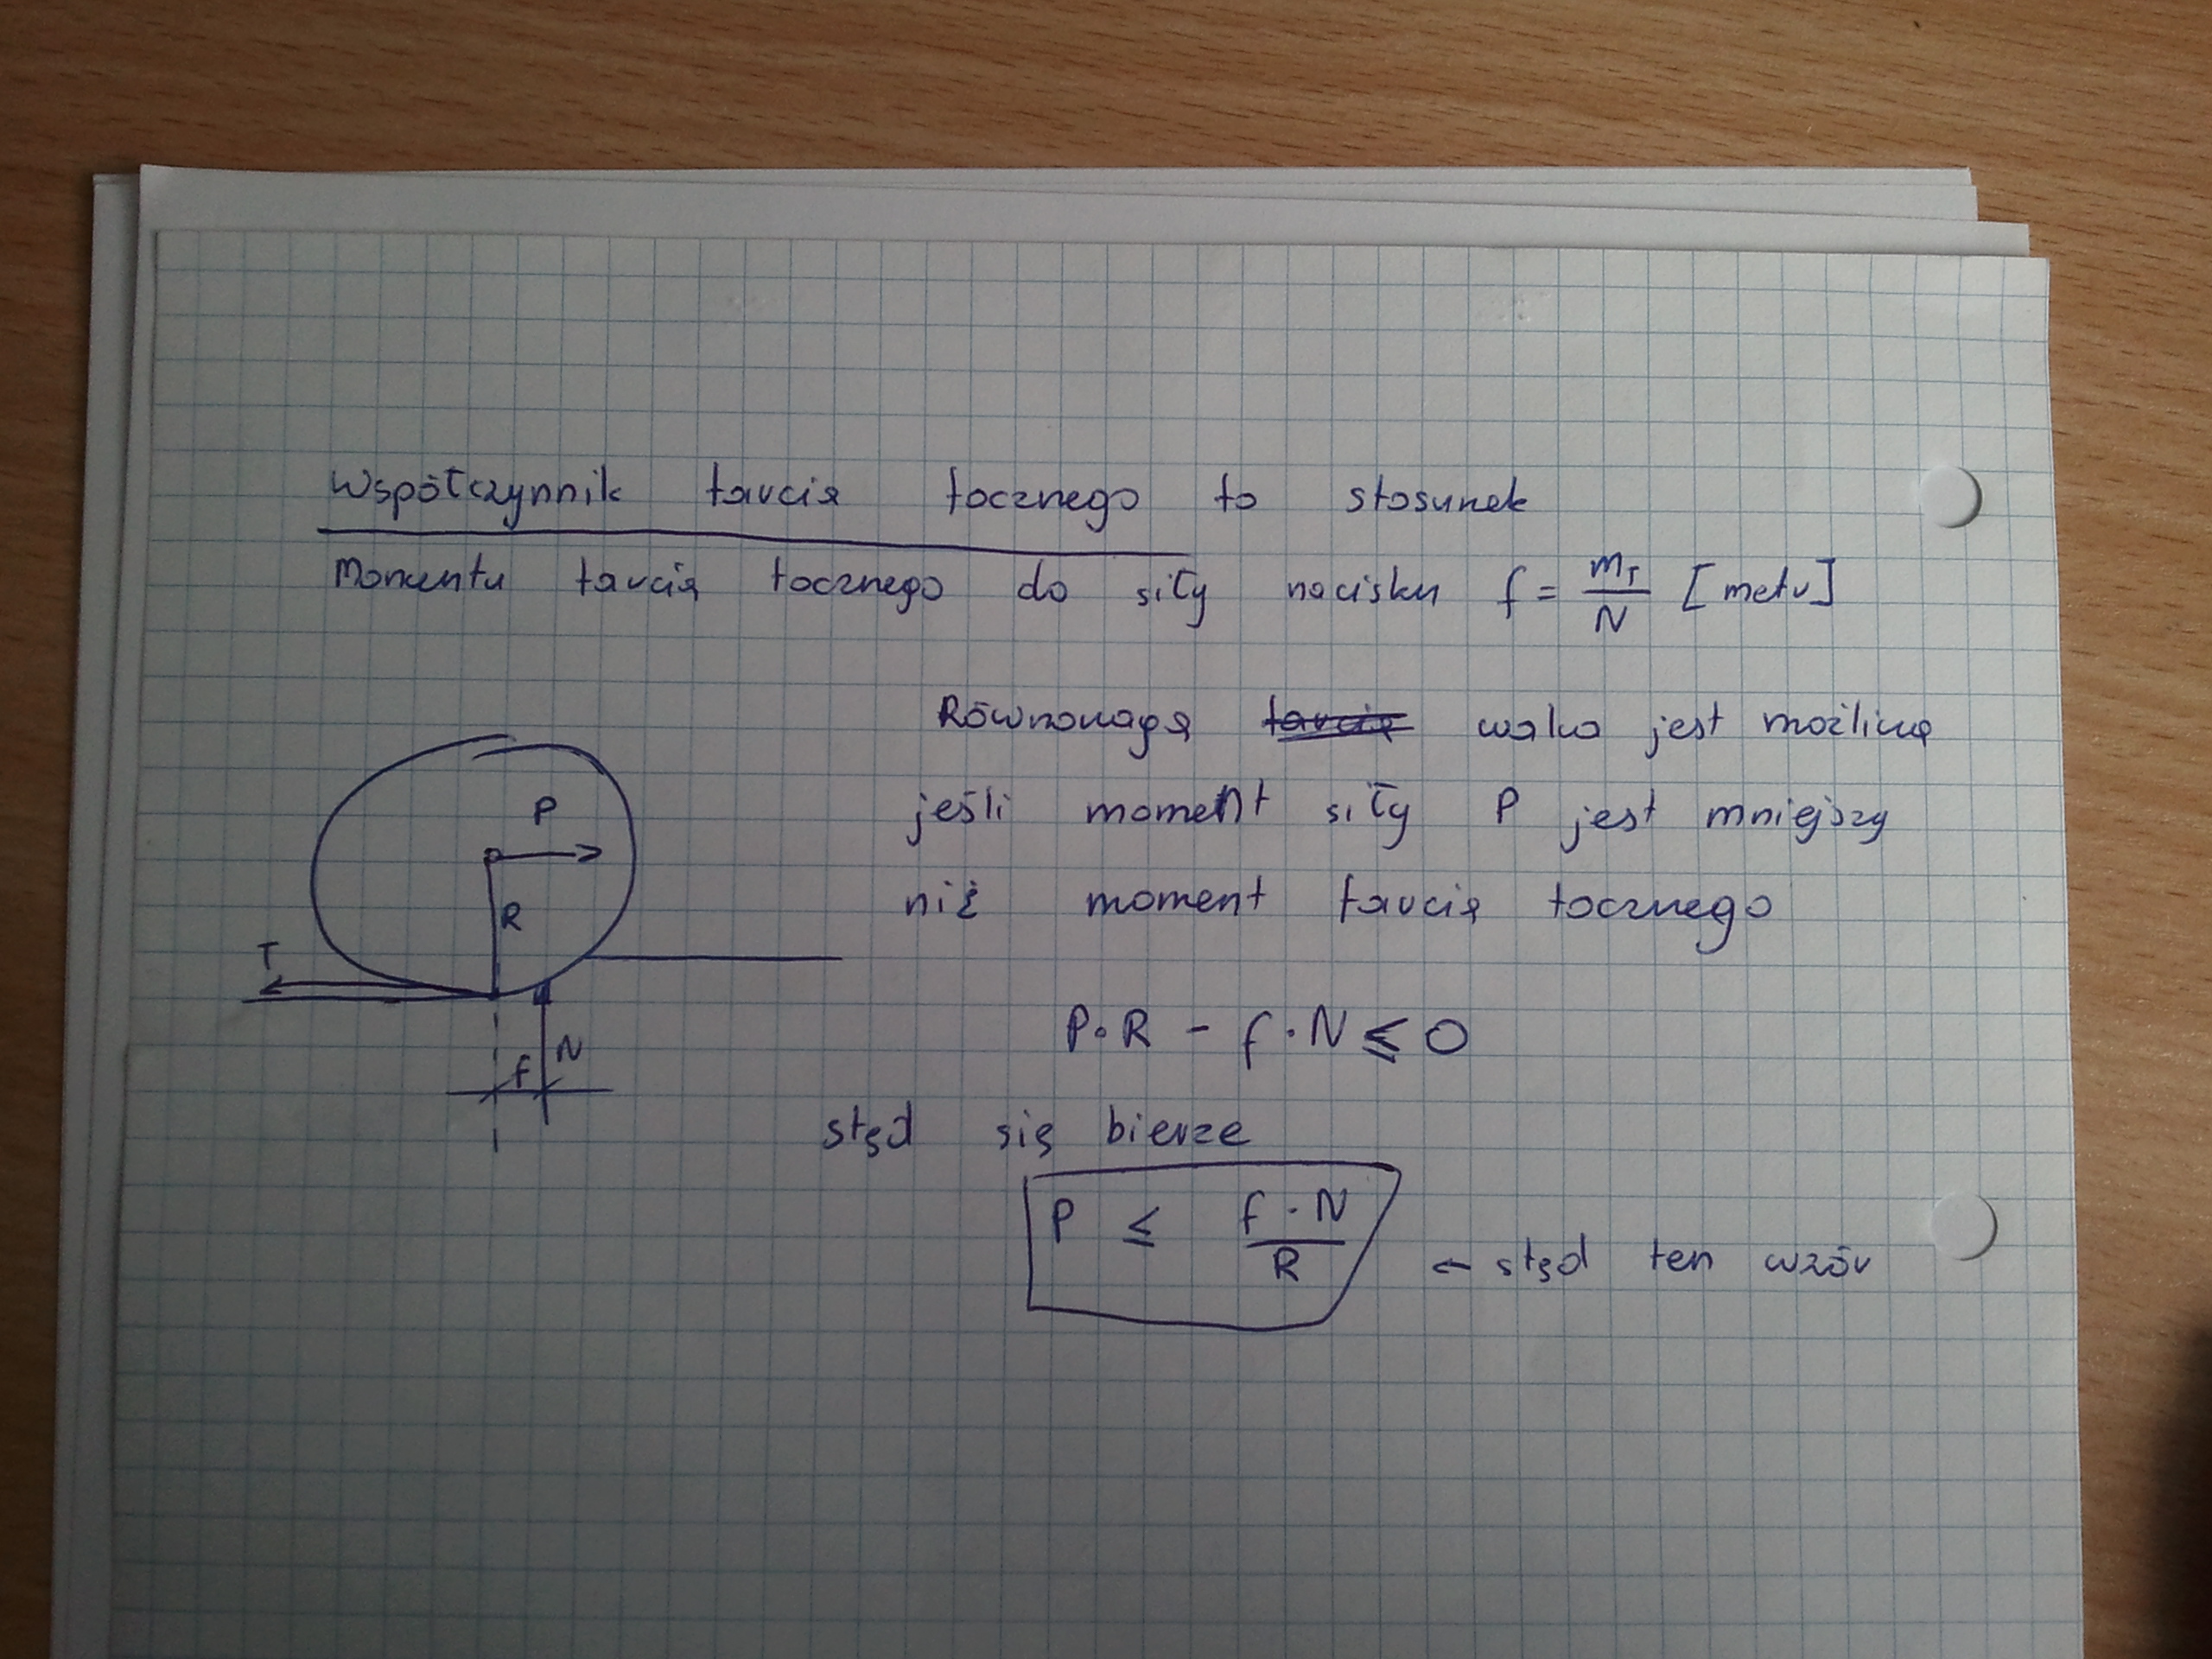 Współczynnik tarcia tocznego to stosunek
Momentu tarcia tocznego do siły nacisku f = m_T / N [metr]
Równowaga tarcia walca jest możliwa
jeśli moment siły P jest mniejszy
niż moment tarcia tocznego
P
R
T
N
f
P·R - f·N ≤ 0
stąd się bierze
P ≤ f·N / R ← stąd ten wzór